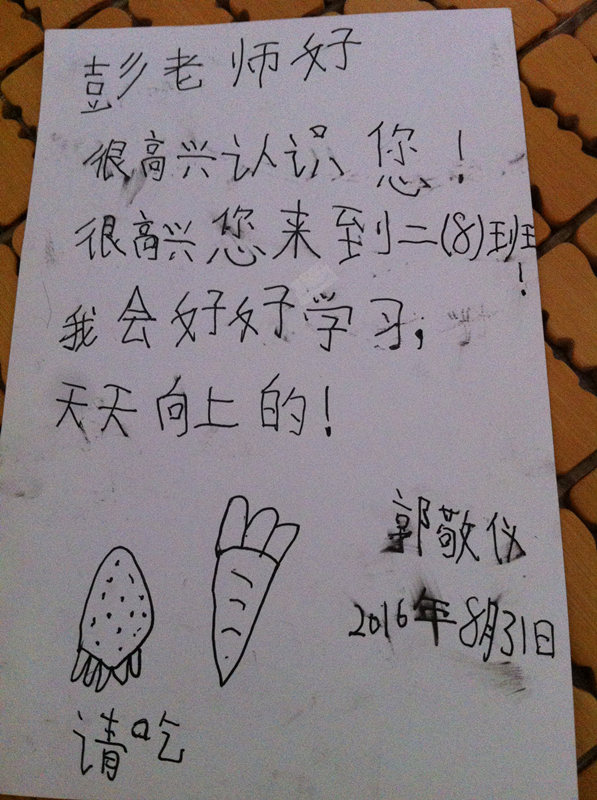 彭老师好
很高兴认识您！
很高兴您来到二(8)班！
我会好好学习，
天天向上的！
郭敬仪
2016年8月31日
请吃